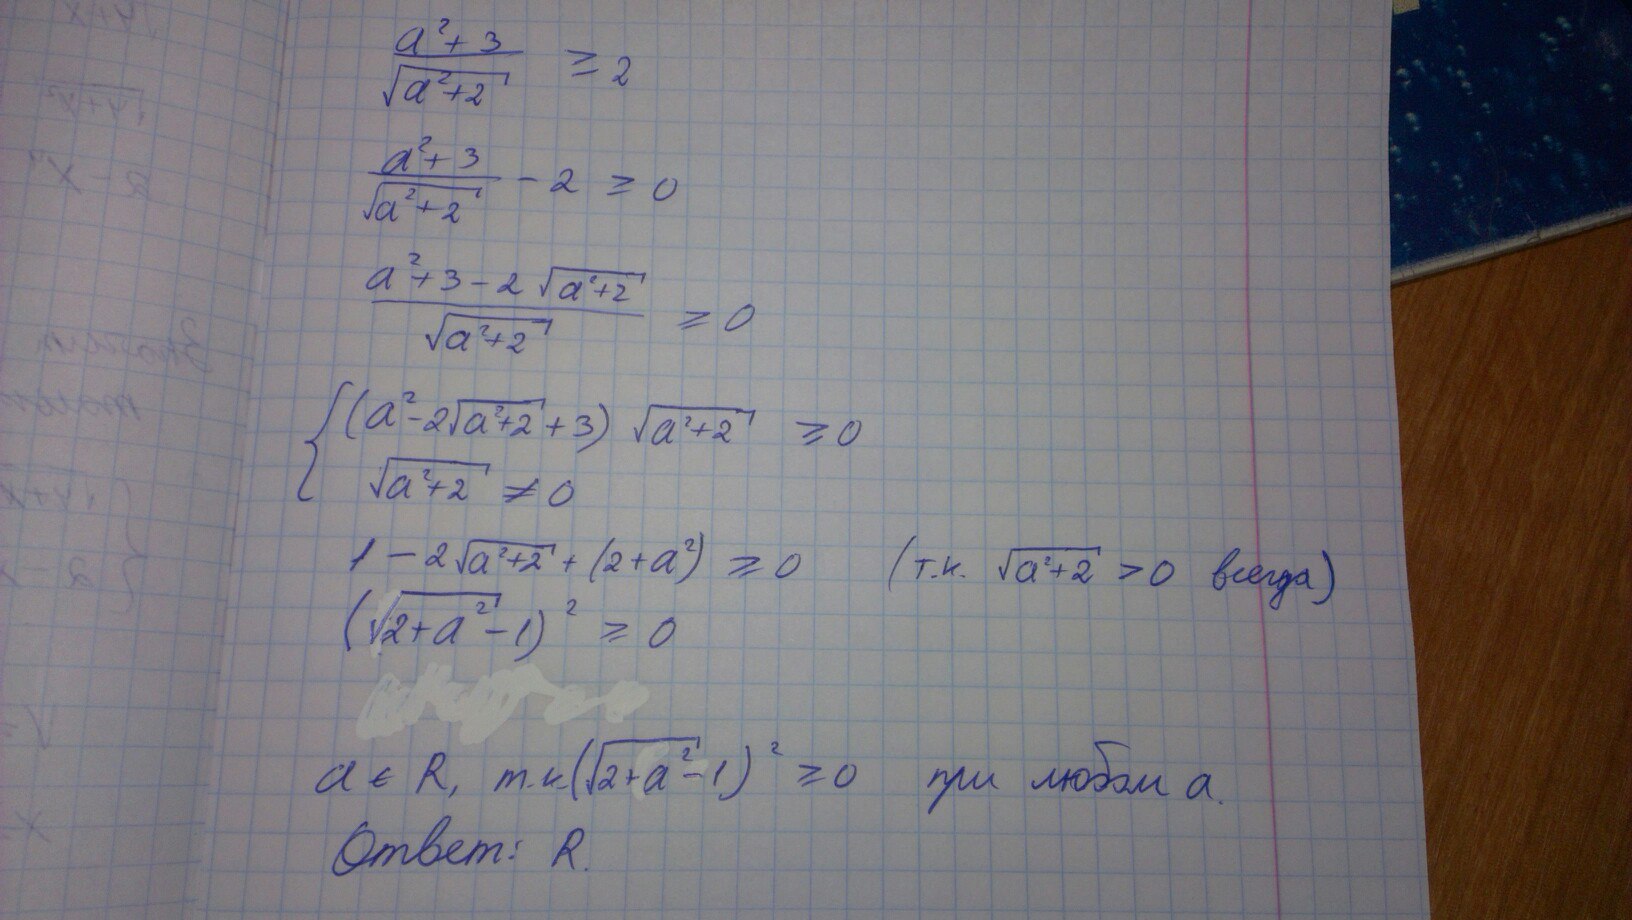 (a²+3)/√(a²+2) ≥ 2
(a²+3)/√(a²+2) - 2 ≥ 0
(a²+3-2√(a²+2))/√(a²+2) ≥ 0
{ (a²-2√(a²+2)+3) √(a²+2) ≥ 0
√(a²+2) ≠ 0
1 - 2√(a²+2) + (2+a²) ≥ 0 (т.к. √(a²+2) > 0 всегда)
(√(2+a²)-1)² ≥ 0
a ∈ R, т.к. (√(2+a²)-1)² ≥ 0 при любом a.
Ответ: R.